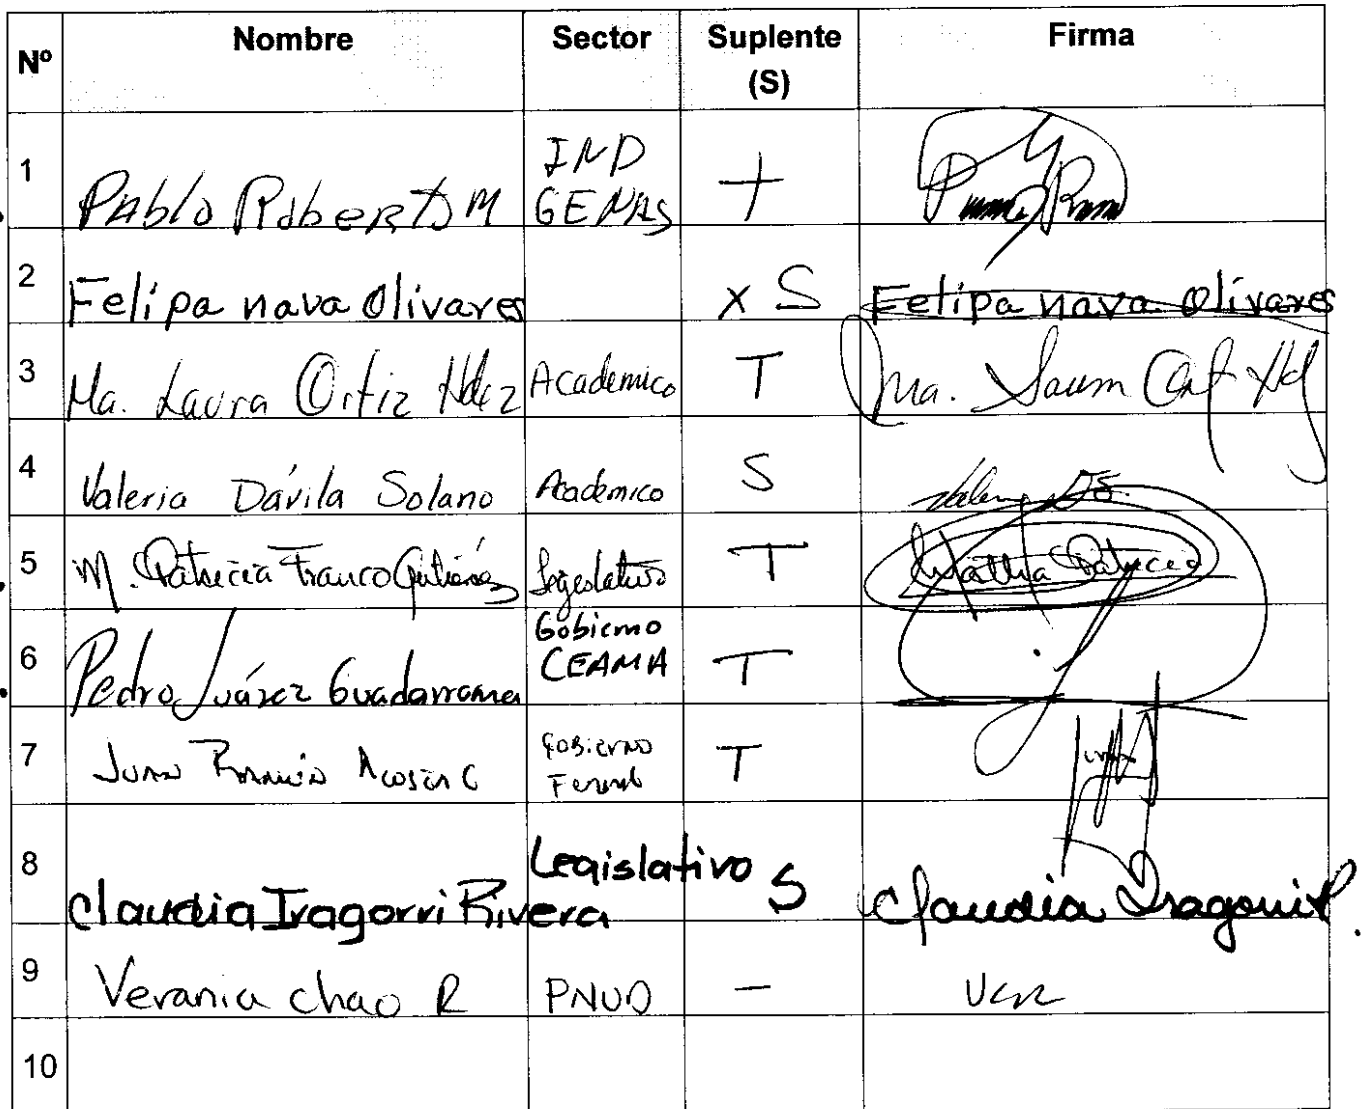 Nº Nombre Sector Suplente (S) Firma
1 Pablo Roberto M INDIGENAS T
2 Felipa nava Olivares x S Felipa nava Olivares
3 Ma. Laura Ortiz Hdez Academico T Ma. Laura Ort Hd
4 Valeria Dávila Solano Academico S
5 M. Patricia Franco Gutiérrez Legislativo T Martha Patricia
6 Pedro Juárez Guadarrama Gobierno CEAMA T
7 Juan Ramón Acosta C Gobierno Federal T
8 Claudia Iragorri Rivera Legislativo S Claudia Iragorri R.
9 Verania Chao R PNUD - VCR
10